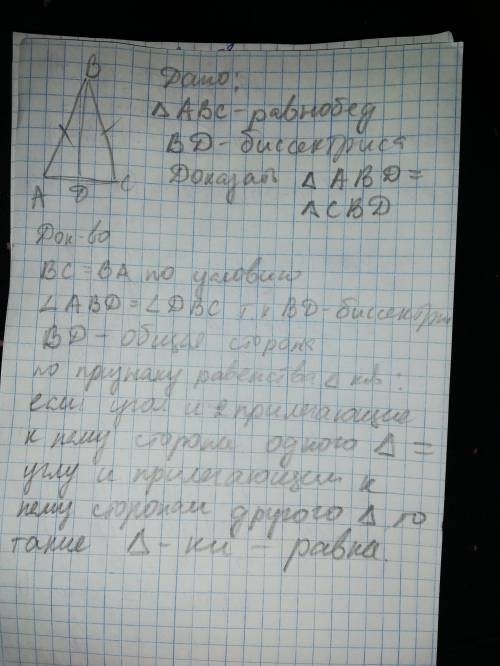 B
Дано:
△ABC - равнобед
BD - биссектриса
Доказать △ABD =
△CBD
A D C
Док-во
BC = BA по условию
∠ABD = ∠DBC т к BD - биссектри
BD - общая сторона
по признаку равенства △ ков:
если угол и 2 прилегающие
к нему стороны одного △ =
углу и прилегающим к
нему сторонам другого △ то
такие △ - ки - равны.